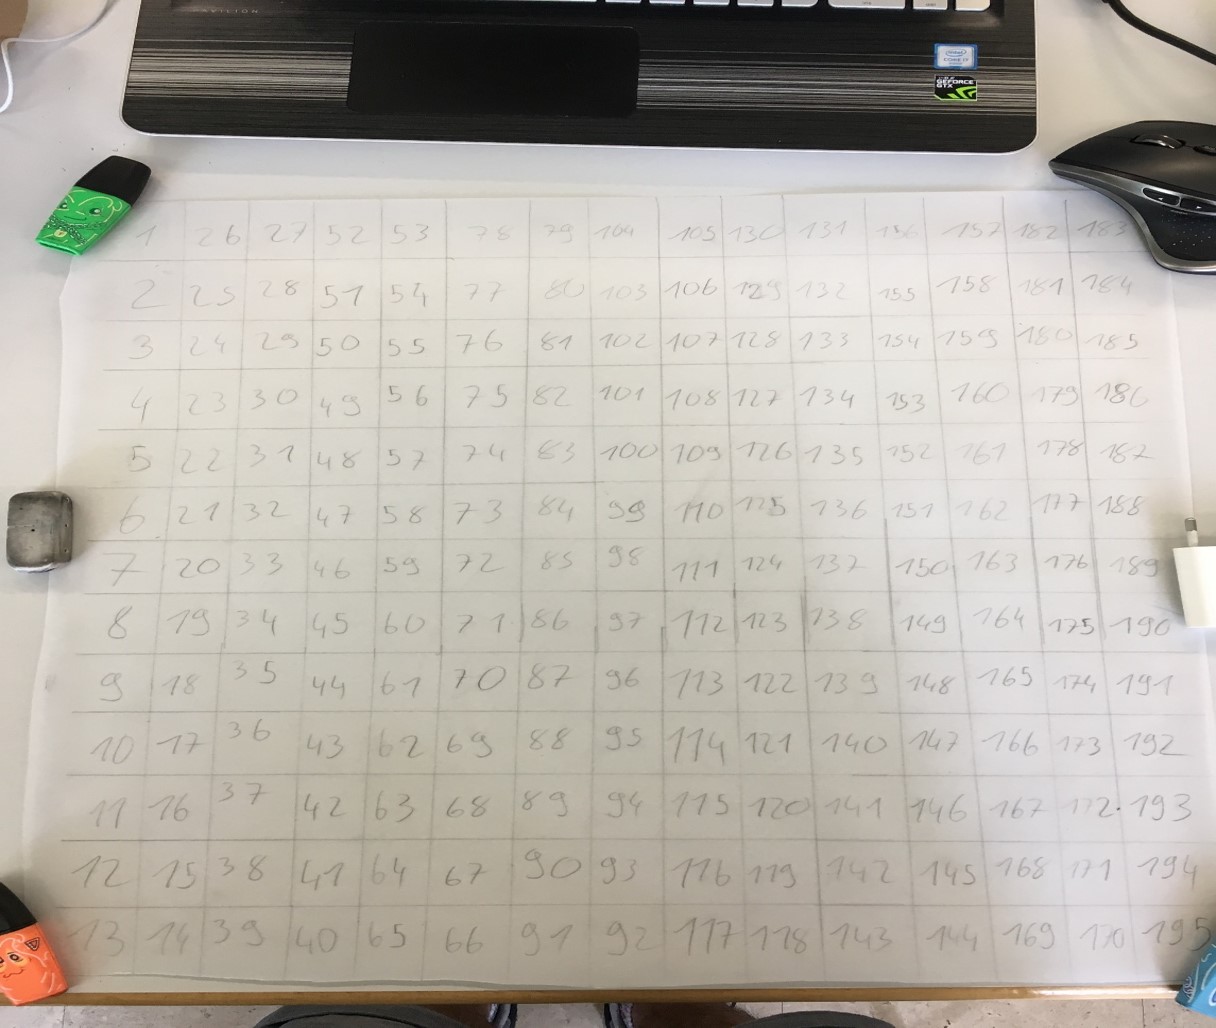 PAVILION
CORE i7
GEFORCE
GTX
1 26 27 52 53 78 79 104 105 130 131 156 157 182 183
2 25 28 51 54 77 80 103 106 129 132 155 158 181 184
3 24 29 50 55 76 81 102 107 128 133 154 159 180 185
4 23 30 49 56 75 82 101 108 127 134 153 160 179 186
5 22 31 48 57 74 83 100 109 126 135 152 161 178 187
6 21 32 47 58 73 84 99 110 125 136 151 162 177 188
7 20 33 46 59 72 85 98 111 124 137 150 163 176 189
8 19 34 45 60 71 86 97 112 123 138 149 164 175 190
9 18 35 44 61 70 87 96 113 122 139 148 165 174 191
10 17 36 43 62 69 88 95 114 121 140 147 166 173 192
11 16 37 42 63 68 89 94 115 120 141 146 167 172 193
12 15 38 41 64 67 90 93 116 119 142 145 168 171 194
13 14 39 40 65 66 91 92 117 118 143 144 169 170 195